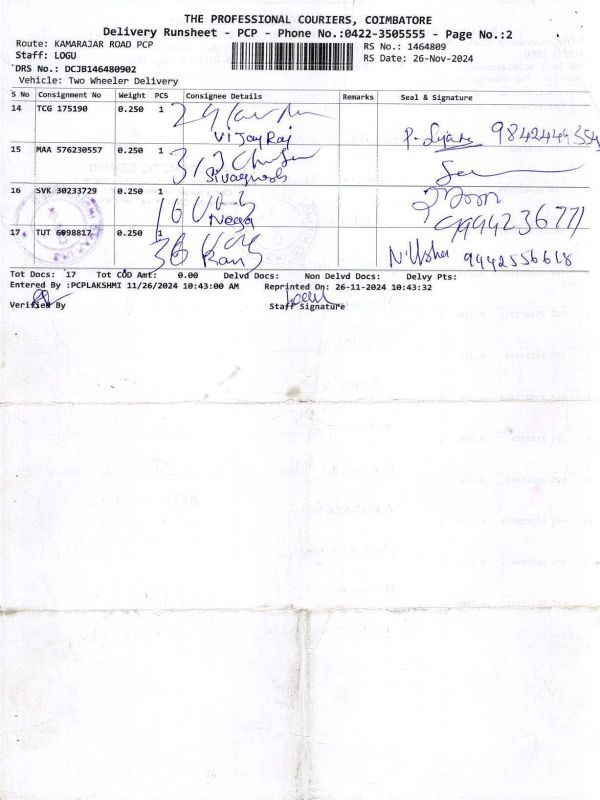 THE PROFESSIONAL COURIERS, COIMBATORE
Delivery Runsheet - PCP - Phone No.:0422-3505555 - Page No.:2
Route: KAMARAJAR ROAD PCP RS No.: 1464809
Staff: LOGU RS Date: 26-Nov-2024
DRS No.: DCJB146480902
Vehicle: Two Wheeler Delivery
S No Consignment No Weight PCS Consignee Details Remarks Seal & Signature
14 TCG 175190 0.250 1
VijayRaj 9842444354
15 MAA 576230557 0.250 1 313
16 SVK 30233729 0.250 1 16
Nega 9994236771
17 TUT 6098817 0.250 1 36
N. Usha 9442556618
Tot Docs: 17 Tot COD Amt: 0.00 Delvd Docs: Non Delvd Docs: Delvy Pts:
Entered By :PCPLAKSHMI 11/26/2024 10:43:00 AM Reprinted On: 26-11-2024 10:43:32
Verified By Staff Signature